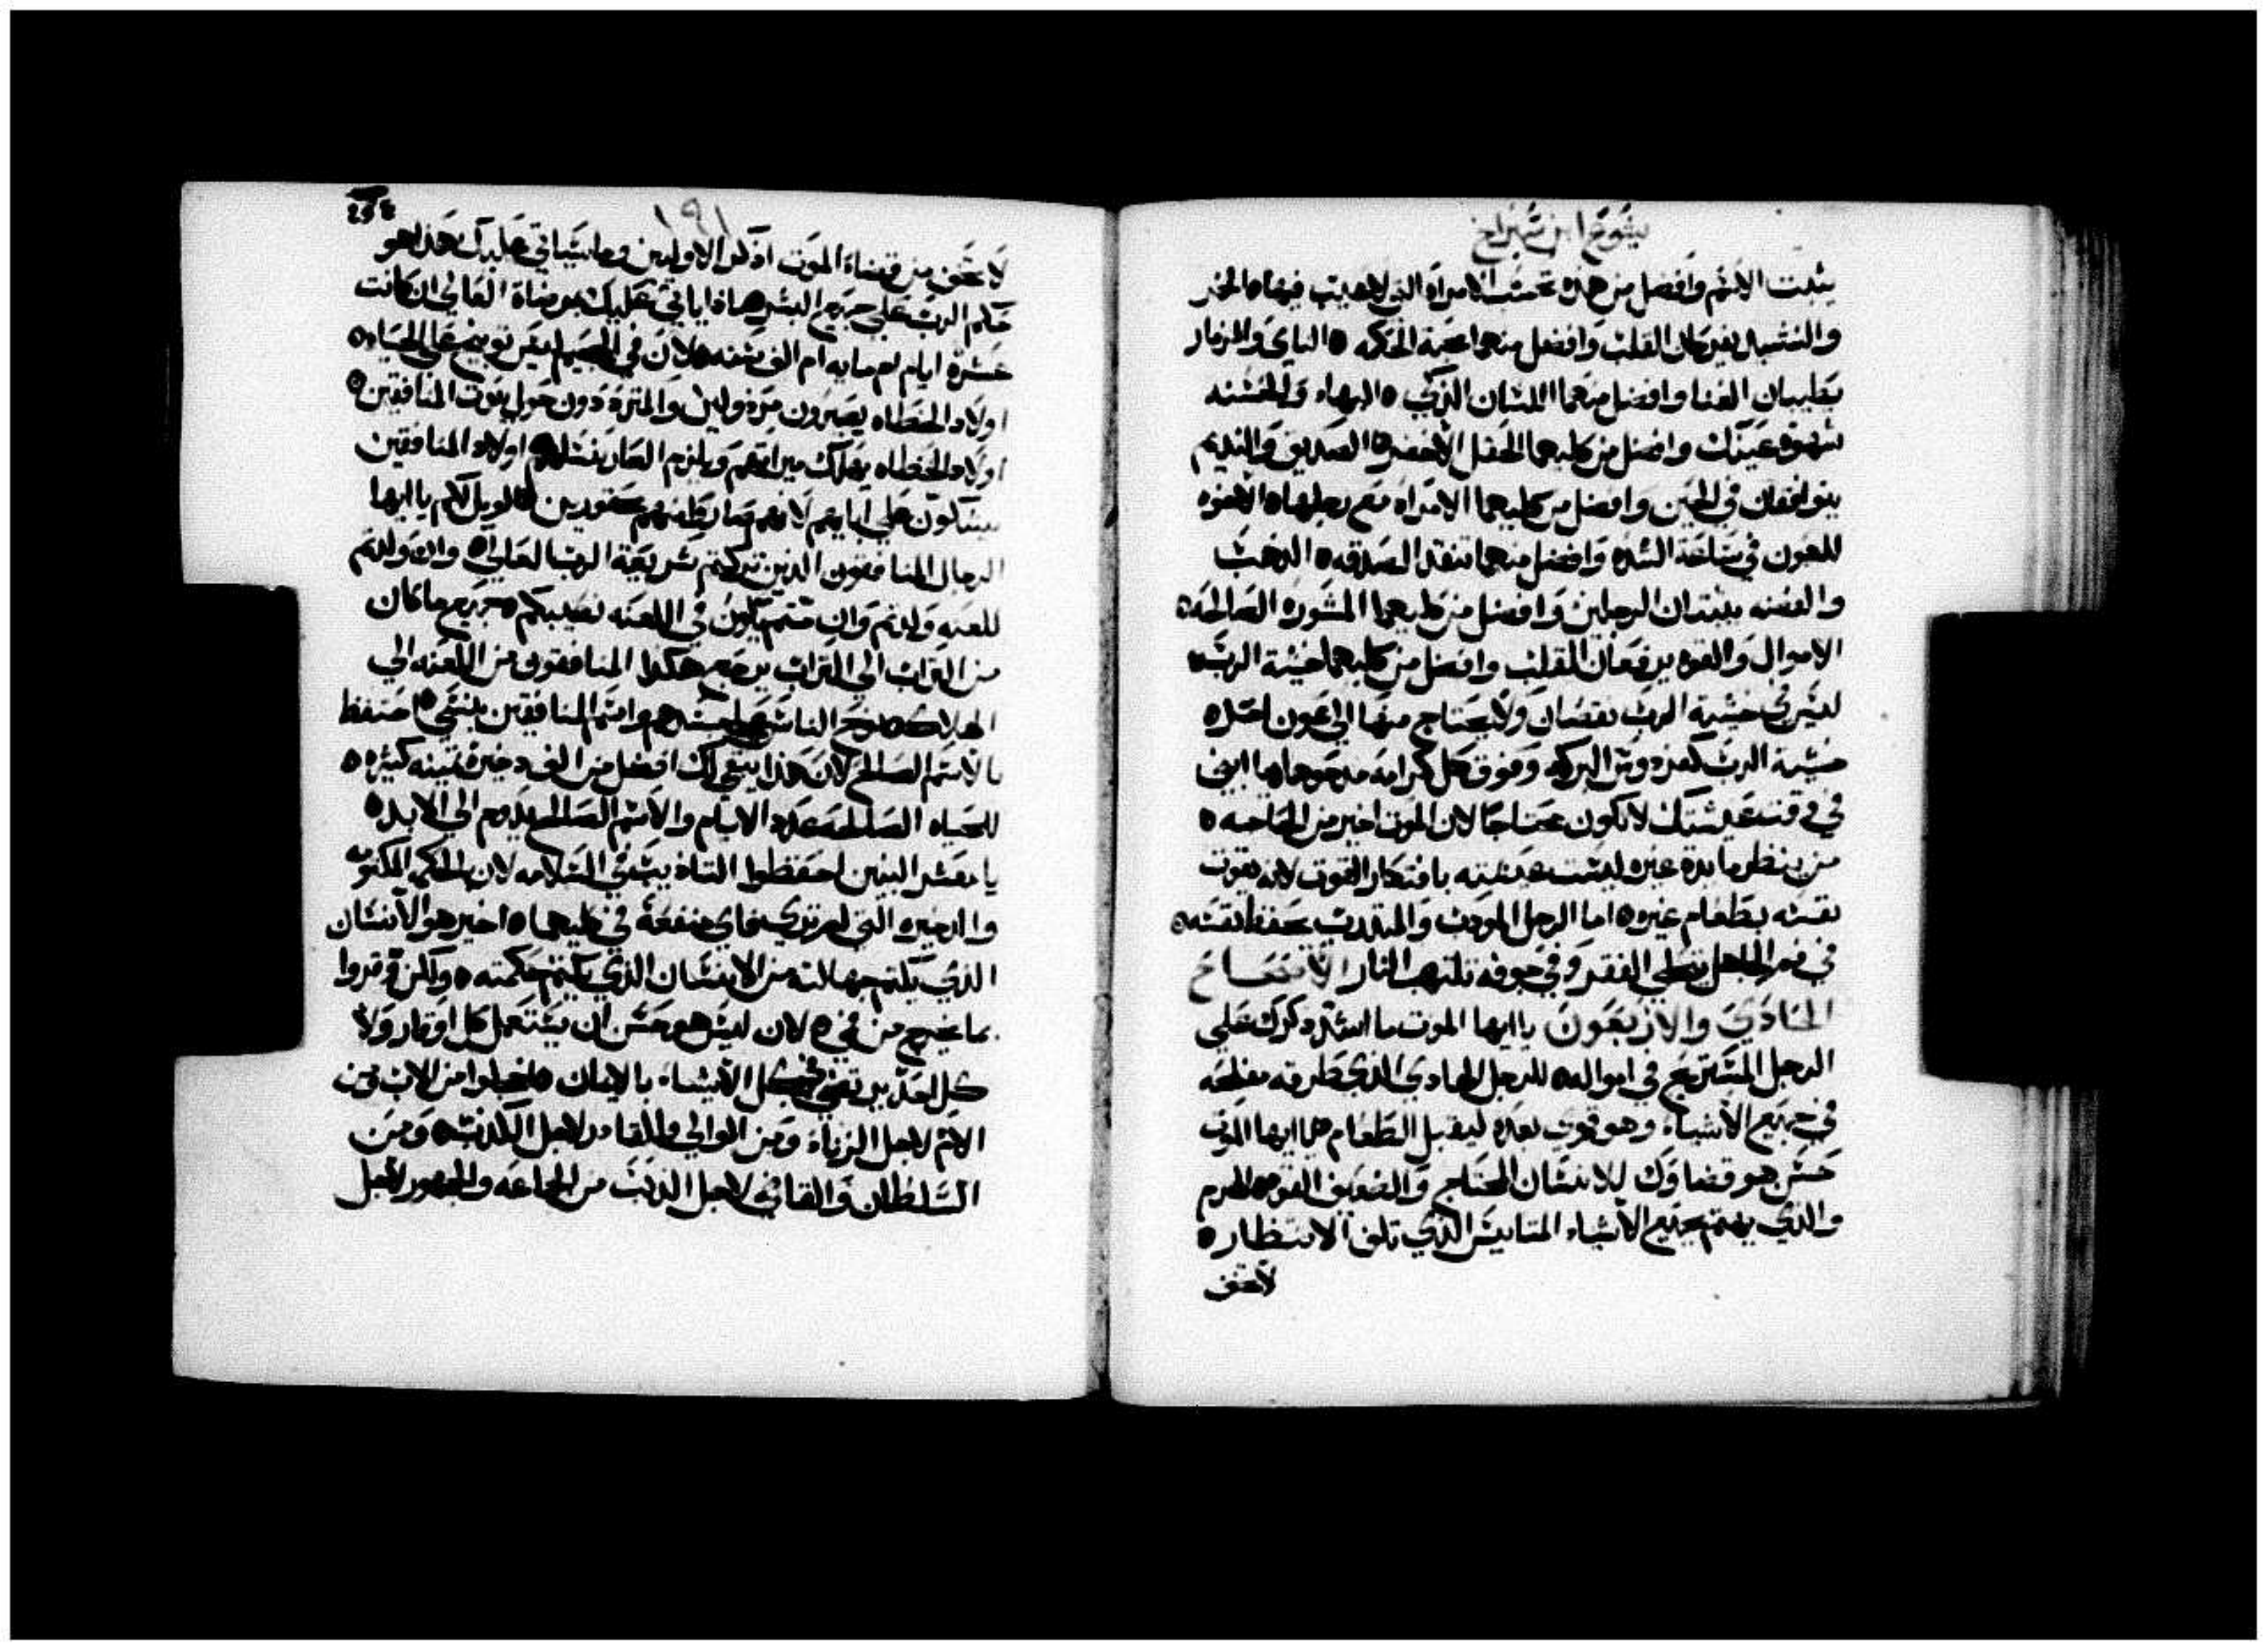 يشوع ابن شيراخ
يثبت الاسم وافضل من هذه تحسب الامراه التي لاعيب فيها ه الخمر
والنشيد يفرحان القلب وافضل منهما محبة الحكمه ه الناي والمزمار
يطيبان الغنا وافضل منهما اللسان الزكي ه البهاء والحسنه
شهوة عينك وافضل من كليهما الحقل الاخضر ه الصديق والنديم
يتوافقان في الحين وافضل من كليهما الامراه مع رجلها ه الاخوه
للعون في ساعة الشده وافضل منهما تنقذ الصدقه ه الذهب
والفضه يثبتان الرجلين وافضل من كليهما المشوره الصالحه ه
الاموال والقوه يرفعان القلب وافضل من كليهما خشية الرب ه
ليس في خشية الرب نقصان ولا يحتاج منها الي عون احد ه
خشية الرب كفردوس البركه وفوق كل كرامه مدحوها ه يا ابني
في وقت عيشتك لا تكون محتاجا لان الموت اخير من الحاجه ه
من ينظر مايدة غيره ليست عيشته بافتكار القوت لانه يقوت
نفسه بطعام غيره ه اما الرجل المودب والمتدرب يحفظ نفسه ه
في فم الجاهل يحلي الفقر وفي جوفه تلتهب النار الاصحاح
الحادي والاربعون يا ايها الموت ما اشر ذكرك علي
الرجل المستريح في امواله ه للرجل الهادي الذي طرقه مفلحه
في جميع الاشياء وهو قوي بعده ليقبل الطعام ه يا ايها الموت
حسن هو قضاوك للانسان المحتاج والضعيف القوه ه الهرم
والذي يهتم بجميع الاشياء المتايس الذي تلف الانتظار ه
لا تخف
١٩١
لا تخف من قضاء الموت اذكر الاولين وما سياتي عليك هذا هو
حكم الرب علي جميع البشر ه ماذا ياتي عليك بمرضاة العالي ان كانت
عشرة ايام ام مايه ام الف سنه ه لان في الجحيم ليس توبيخ علي الحياه ه
اولاد الخطاه يصيرون مرذولين والمتردد دون حول بيوت المنافقين ه
اولاد الخطاه يهلك ميراثهم ويلزم العار نسلهم ه اولاد المنافقين
يشكون علي ابايهم لانهم من اجلهم محقورين ه الويل لكم يا ايها
الرجال المنافقون الذين تركتم شريعة الرب العلي ه وان ولدتم
للعنه ولدتم وان متم يكون في اللعنه نصيبكم ه جميع ما كان
من التراب الي التراب يرجع هكذا المنافقون من اللعنه الي
الهلاك ه نوح الناس علي جسدهم واسم المنافقين ينسي ه احتفظ
بالاسم الصالح لان هذا يبقي لك افضل من الف دخيرة ثمينه كثيره ه
للحياه الصالحه عدد الايام والاسم الصالح يدوم الي الابد ه
يا معشر البنين احفظوا التاد ب في السلامه لان الحكمه المكتومه
والدخيره التي لم تري فاي منفعة في كليهما ه اخير هو الانسان
الذي يكتم جهالته من الانسان الذي يكتم حكمته ه ولكن وقروا
ما يخرج من في ه لان ليس هو حسن ان يستعمل كل اوقار ولا
كل احد يرتضي كل الاشياء بالايمان ه اخجلوا من الاب ومن
الام لاجل الزناء ومن الوالي والقادر لاجل الكذب ه ومن
السلطان والقاضي لاجل الذنب من الجماعه والجمهور لاجل